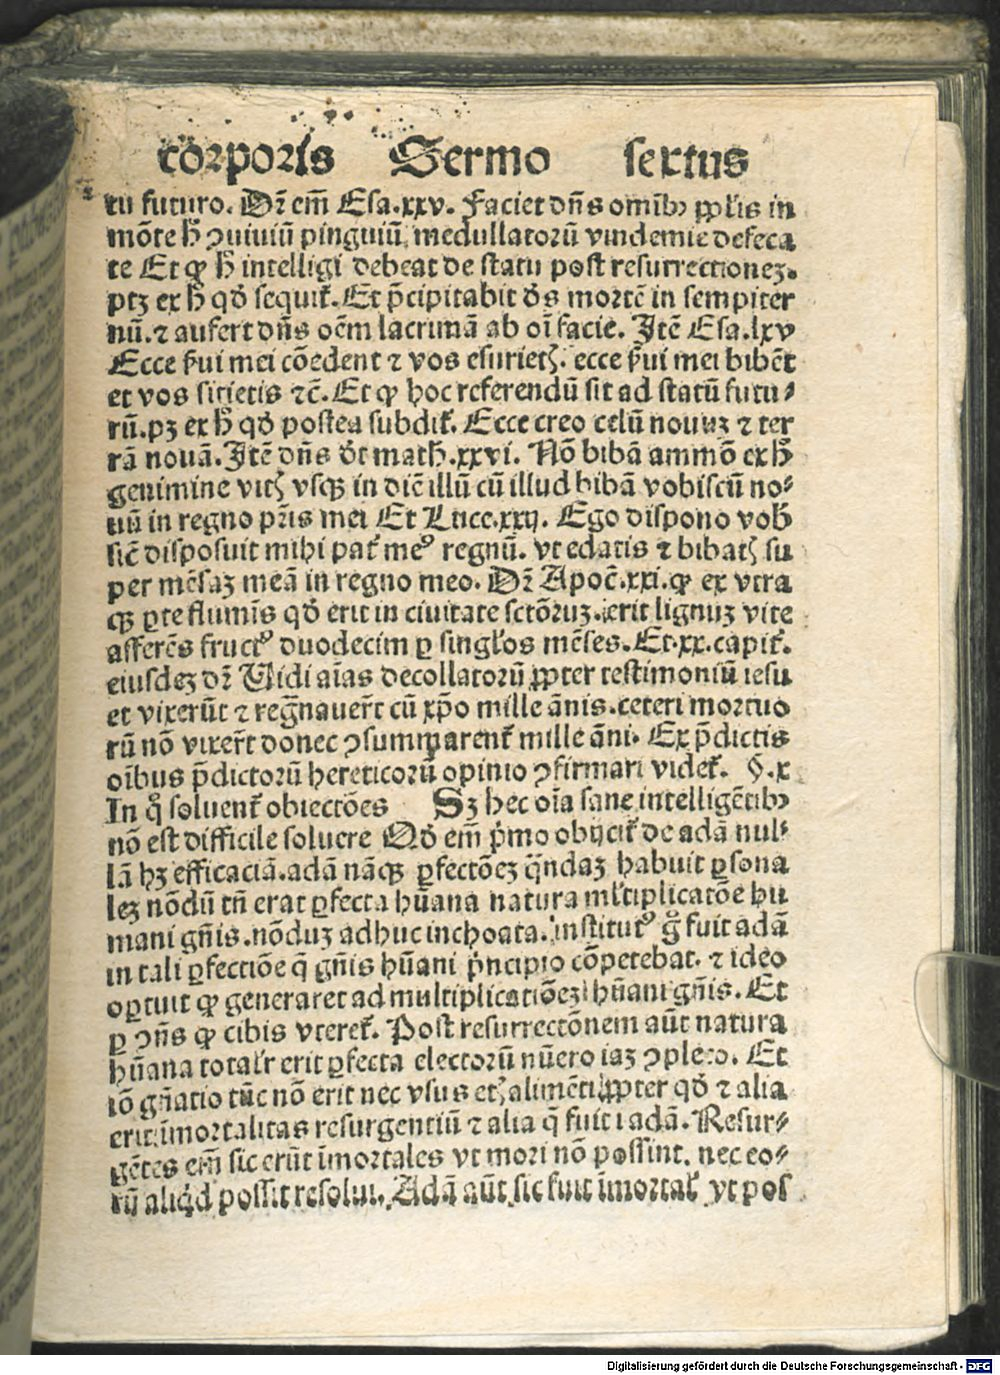 corporis Sermo sextus
tu futuro. Dr̄ em̄ Esa.xxv. Faciet dn̄s omībꝫ ꝓplis in
mōte ꝑ ꝯuiuiū pinguiū, medullatorū vindemie defeca
te Et ꝙ ħ intelligi debeat de statu post resurrectioneꝫ.
ptꝫ ex ħ qđ sequit᷑. Et p̄cipitabit dn̄s mortē in sempiter
nū. ⁊ aufert dn̄s oēm lacrimā ab oī facie. Itē Esa.lxv
Ecce ẜui mei cōedent ⁊ vos esurietꝭ. ecce ẜui mei bibēt
et vos sitietis ⁊c̄. Et ꝙ hoc referendū sit ad statū futu⸗
rū.pꝫ ex ħ qđ postea subdit᷑. Ecce creo celū nouuꝫ ⁊ ter
rā nouā. Itē dn̄s dt̄ math̄.xxvi. Nō bibā ammō ex ħ
genimine vitꝭ vsqꝫ in diē illū cū illud bibā vobiscū no⸗
uū in regno pr̄is mei Et Luce.xxij. Ego dispono vob̄
sic̄ disposuit mihi pat᷑ meꝰ regnū. vt edatis ⁊ bibatꝭ su
per mēsaꝫ meā in regno meo. Dr̄ Apoc̄.xxi.ꝙ ex vtra
qꝫ ꝑte flumīs qđ erit in ciuitate sctōruꝫ. erit lignuꝫ vite
afferēs fructꝰ duodecim ꝑ singl̓os mēses. Et.xx.capit᷑.
eiusdeꝫ dr̄ Uidi aīas decollatorū ꝓpter testimoniū iesu
et vixerūt ⁊ regnauer̄t cū xp̄o mille ānis.ceteri mortuo
rū nō vixer̄t donec ꝯsummarent᷑ mille āni. Ex p̄dictis
oībus p̄dictorū hereticorū opinio ꝯfirmari videt᷑. §.x
In q̄ soluent᷑ obiectōes Sꝫ hec oīa sane intelligētibꝫ
nō est difficile soluere Qđ em̄ pͥmo obijcit᷑ de adā nul⸗
lā hꝫ efficaciā.adā nāqꝫ ꝑfectōeꝫ q̄ndaꝫ habuit ꝑsona
leꝫ nōdū tn̄ erat ꝑfecta hūana natura ml̓tiplicatōe hu
mani gn̄is.nōduꝫ adhuc inchoata. institutꝰ gͦ fuit adā
in tali ꝑfectiōe q̄ gn̄is hūani pͥncipio cōpetebat. ⁊ ideo
oꝑtuit ꝙ generaret ad multiplicatiōeꝫ hūani gn̄is. Et
ꝑ ꝯn̄s ꝙ cibis vteret᷑. Post resurrectōnem aūt natura
hūana total̓r erit ꝑfecta electorū nūero iaꝫ ꝯpleto. Et
iō gn̄atio tūc nō erit nec vsus etꝭ alimēti ꝓpter qđ ⁊ alia
erit īmortalitas resurgentiū ⁊ alia q̄ fuit ī adā. Resur⸗
gētes em̄ sic erūt īmortales vt mori nō possint. nec eo⸗
rū aliqͥd possit resolui. Adā aūt sic fuit īmortal̓ vt pos
Digitalisierung gefördert durch die Deutsche Forschungsgemeinschaft - DFG